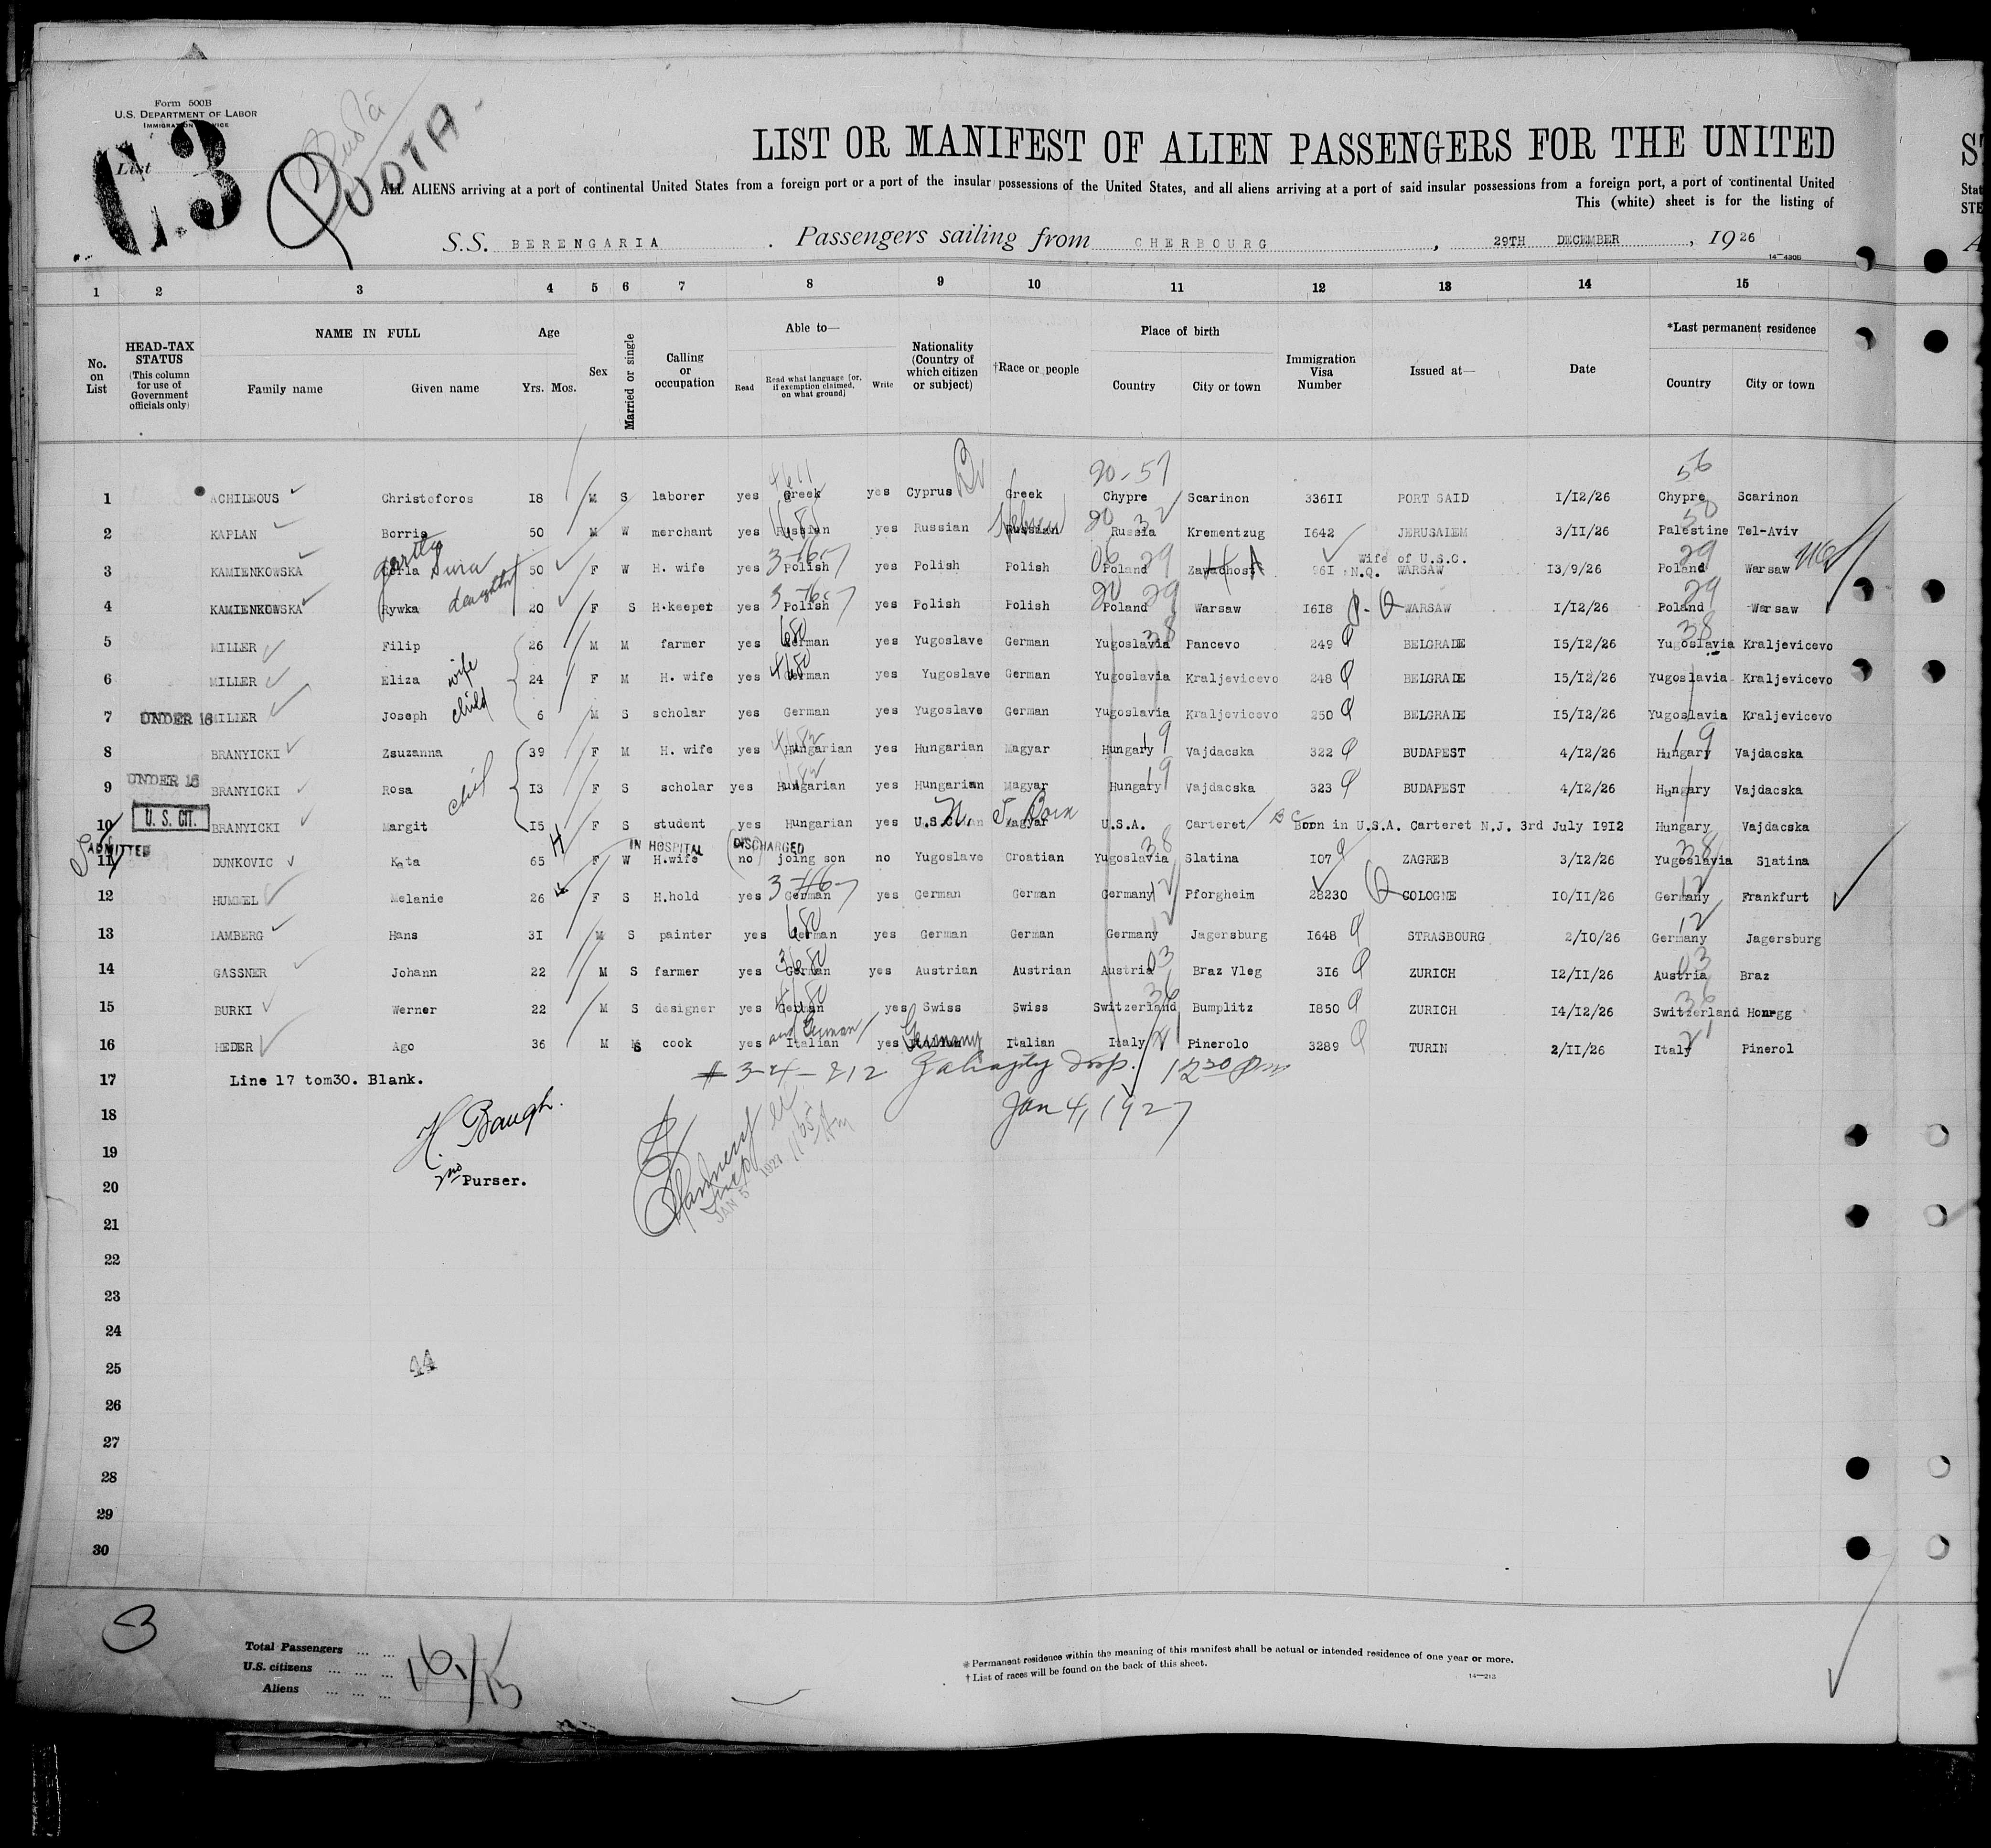 Form 500B
U.S. DEPARTMENT OF LABOR
IMMIGRATION SERVICE
List 3
QUOTA
LIST OR MANIFEST OF ALIEN PASSENGERS FOR THE UNITED
ALL ALIENS arriving at a port of continental United States from a foreign port or a port of the insular possessions of the United States, and all aliens arriving at a port of said insular possessions from a foreign port, a port of continental United
This (white) sheet is for the listing of
S.S. BERENGARIA . Passengers sailing from CHERBOURG , 29TH DECEMBER , 1926
14—430B
1 2 3 4 5 6 7 8 9 10 11 12 13 14 15
No. on List
HEAD-TAX STATUS (This column for use of Government officials only)
NAME IN FULL
Family name Given name
Age
Yrs. Mos.
Sex
Married or single
Calling or occupation
Able to—
Read
Read what language (or, if exemption claimed, on what ground)
Write
Nationality (Country of which citizen or subject)
†Race or people
Place of birth
Country City or town
Immigration Visa Number
Issued at—
Date
*Last permanent residence
Country City or town
20-57 56
1 ACHILEOUS Christoforos 18 M S laborer yes Greek yes Cyprus Greek Chypre Scarinon 336II PORT SAID I/I2/26 Chypre Scarinon
2 KAPLAN Borris 50 M W merchant yes Russian yes Russian Russian Hebrew Russia Krementzug I642 JERUSALEM 3/II/26 Palestine Tel-Aviv
Wife of U.S.C.
3 KAMIENKOWSKA Sura 50 F W H. wife yes Polish yes Polish Polish Poland 29 Zawachost 96I N.Q. WARSAW I3/9/26 Poland 29 Warsaw
4 KAMIENKOWSKA Rywka daughter 20 F S H.keeper yes Polish yes Polish Polish Poland 29 Warsaw I6I8 WARSAW I/I2/26 Poland 29 Warsaw
5 MILLER Filip 26 M M farmer yes German yes Yugoslave German Yugoslavia 38 Pancevo 249 Q BELGRADE I5/I2/26 Yugoslavia 38 Kraljevicevo
6 MILLER Eliza wife 24 F M H. wife yes German yes Yugoslave German Yugoslavia Kraljevicevo 248 Q BELGRADE I5/I2/26 Yugoslavia Kraljevicevo
7 UNDER 16 MILLER Joseph child 6 M S scholar yes German yes Yugoslave German Yugoslavia Kraljevicevo 250 Q BELGRADE I5/I2/26 Yugoslavia Kraljevicevo
8 BRANYICKI Zsuzanna 39 F M H. wife yes Hungarian yes Hungarian Magyar Hungary 19 Vajdacska 322 Q BUDAPEST 4/I2/26 Hungary 19 Vajdacska
9 UNDER 16 BRANYICKI Rosa I3 F S scholar yes Hungarian yes Hungarian Magyar Hungary 19 Vajdacska 323 Q BUDAPEST 4/I2/26 Hungary Vajdacska
10 U. S. CIT. BRANYICKI Margit I5 F S student yes Hungarian yes U.S.C. Magyar Born U.S.A. Carteret Born in U.S.A. Carteret N.J. 3rd July I9I2 Hungary Vajdacska
ADMITTED IN HOSPITAL DISCHARGED
11 DUNKOVIC Kata 65 F W H.wife no joing son no Yugoslave Croatian Yugoslavia 38 Slatina I07 Q ZAGREB 3/I2/26 Yugoslavia 38 Slatina
12 HUMMEL Melanie 26 F S H.hold yes German yes German German Germany 12 Pforgheim 28230 Q COLOGNE I0/II/26 Germany 12 Frankfurt
13 LAMBERG Hans 3I M S painter yes German yes German German Germany 12 Jagersburg I648 Q STRASBOURG 2/I0/26 Germany 12 Jagersburg
14 GASSNER Johann 22 M S farmer yes German yes Austrian Austrian Austria 03 Braz Vleg 3I6 Q ZURICH I2/II/26 Austria 03 Braz
15 BURKI Werner 22 M S designer yes German yes Swiss Swiss Switzerland 36 Bumplitz I850 Q ZURICH I4/I2/26 Switzerland 36 Honrgg
16 HEDER Ago 36 M S cook yes Italian and German yes Germany Italian Italy 21 Pinerolo 3289 Q TURIN 2/II/26 Italy 21 Pinerol
17 Line 17 tom30. Blank.
# 3-4-812 Insp. 1230 Pm
Jan 4, 1927
18
H. Baugh.
19
2nd Purser.
JAN 5 1927
20
21
22
23
24
25
44
26
27
28
29
30
3
Total Passengers ... ... 16
U.S. citizens ... ... ... 1
Aliens ... ... ... 15
* Permanent residence within the meaning of this manifest shall be actual or intended residence of one year or more.
† List of races will be found on the back of this sheet.
14—213